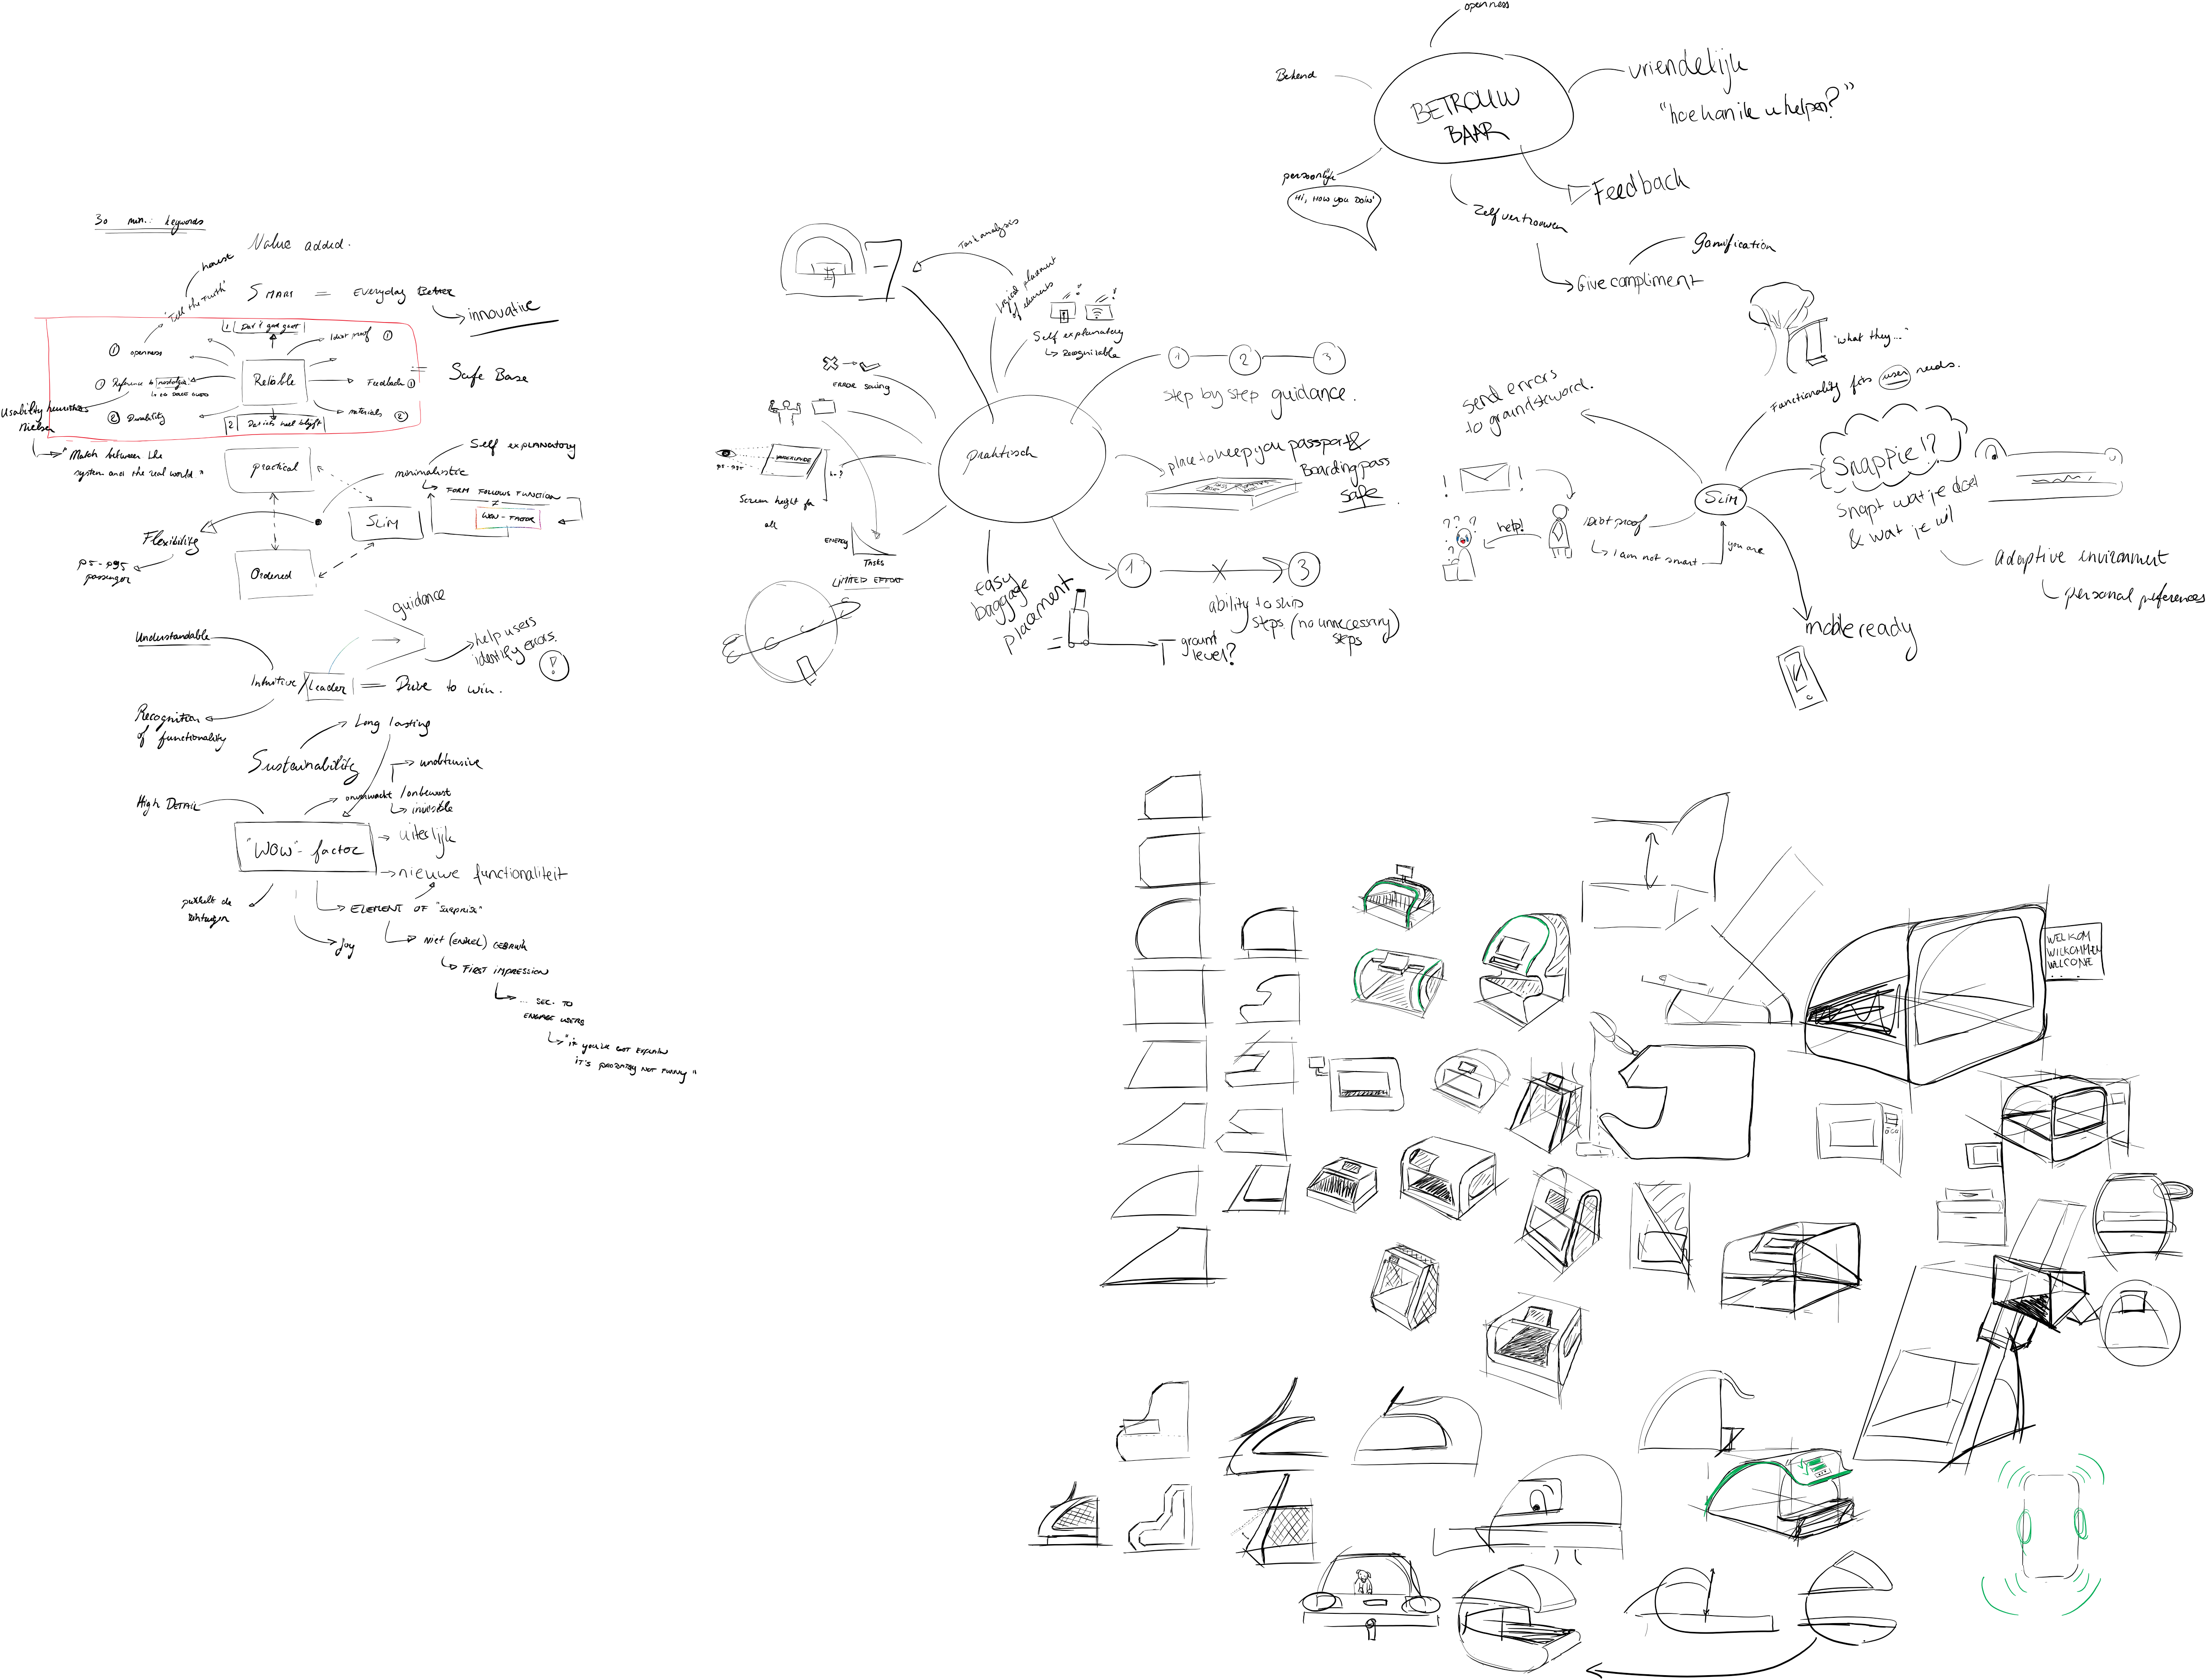 30 min.: keywords
Value added.
honest
"Tell the truth"
Smart = Everyday Better
innovative
1 Dat 't goed gaat
Idiot proof 1
1 openness
Reliable
1 Reference to nostalgia
Feedback 1
= Safe Base
Usability heuristics
Nielsen
2 Durability
2 Dat iets heel blijft
materials 2
"Match between the
system and the real world"
practical
Self explanatory
minimalistic
FORM FOLLOWS FUNCTION
≠
WOW-FACTOR
SLIM
Flexibility
P5-P95
passenger
Ordered
guidance
Understandable
help users
identify errors.
!
Intuitive / Leader = Drive to win.
Recognition
of functionality
Long lasting
Sustainability
unobtrusive
High DETAIL
onverwacht / onbewust
invisible
"WOW"-factor
uiterlijk
nieuwe functionaliteit
prikkelt de
zintuigen
ELEMENT OF "surprise"
Joy
NIET (ENKEL) GEBRUIK
FIRST IMPRESSION
... SEC. TO
ENGAGE USERS
"if you've got explain
it's probably not funny"
praktisch
Task analysis
logical placement
of elements
Self explanatory
Recognizable
ERROR saving
1 2 3
step by step guidance.
VANDERLANDE
P5-P95
h=?
Screen height for
all
place to keep you passport &
Boardingpass
safe.
ENERGY
TASKS
LIMITED EFFORT
easy
baggage
placement
ground
level?
1 3
ability to skip
steps (no unnecessary)
steps
openness
Bekend
BETROUW
BAAR
vriendelijk
"hoe kan ik u helpen?"
persoonlijk
Hi, How you Doin'
Feedback
Zelfvertrouwen
Gamification
Give compliment
"what they..."
Functionality fits user needs.
send errors
to groundsteward.
Snappie!?
Snapt wat je doet
& wat je wil
SLIM
! !
???
help!
Idiot proof
I am not smart
you are
adaptive environment
personal preferences
mobile ready
WELKOM
WILKOMMEN
WELCOME
...